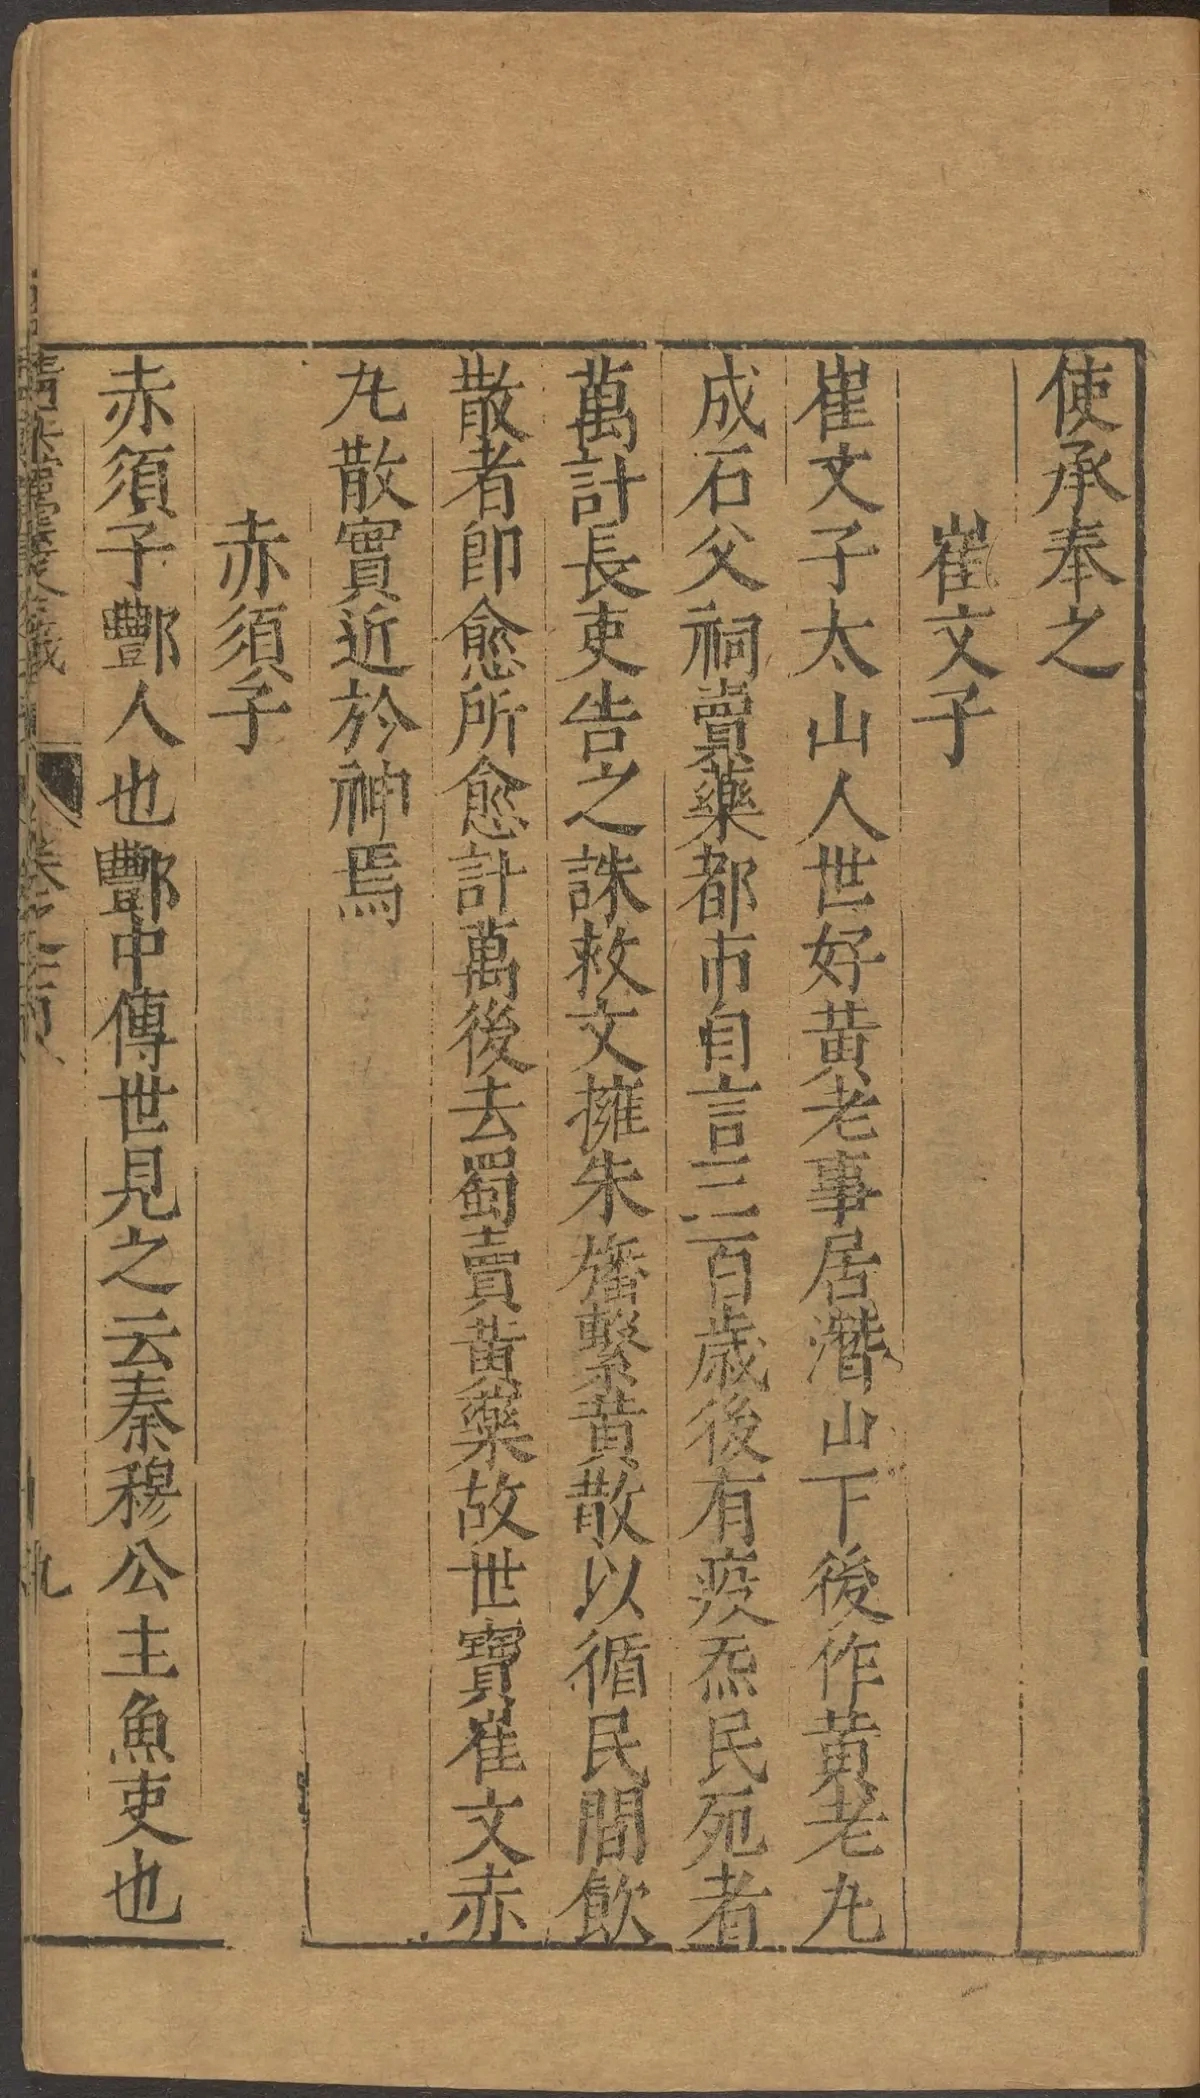 使承奉之
崔文子
崔文子太山人世好黃老事居潛山下後作黃老丸
成石父祠賣藥都市自言三百歲後有疫炁民死者
萬計長吏告之諸救文擁朱旛繫黃散以循民間飲
散者即愈所愈計萬後去蜀賣黃藥故世寶崔文赤
丸散實近於神焉
赤須子
赤須子酆人也酆中傳世見之云秦穆公主魚吏也